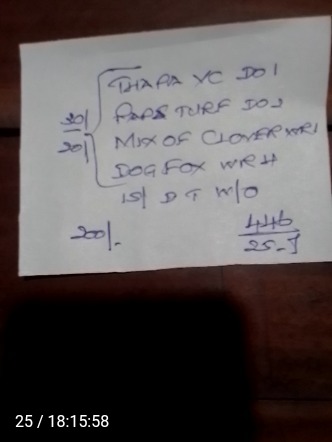 THAPA YC DO1
PAPS TURF DO2
30/
20/
MIX OF CLOVER WR1
DOG FOX WR4
15/ D T W/O
200/-
446
25-J
25 / 18:15:58